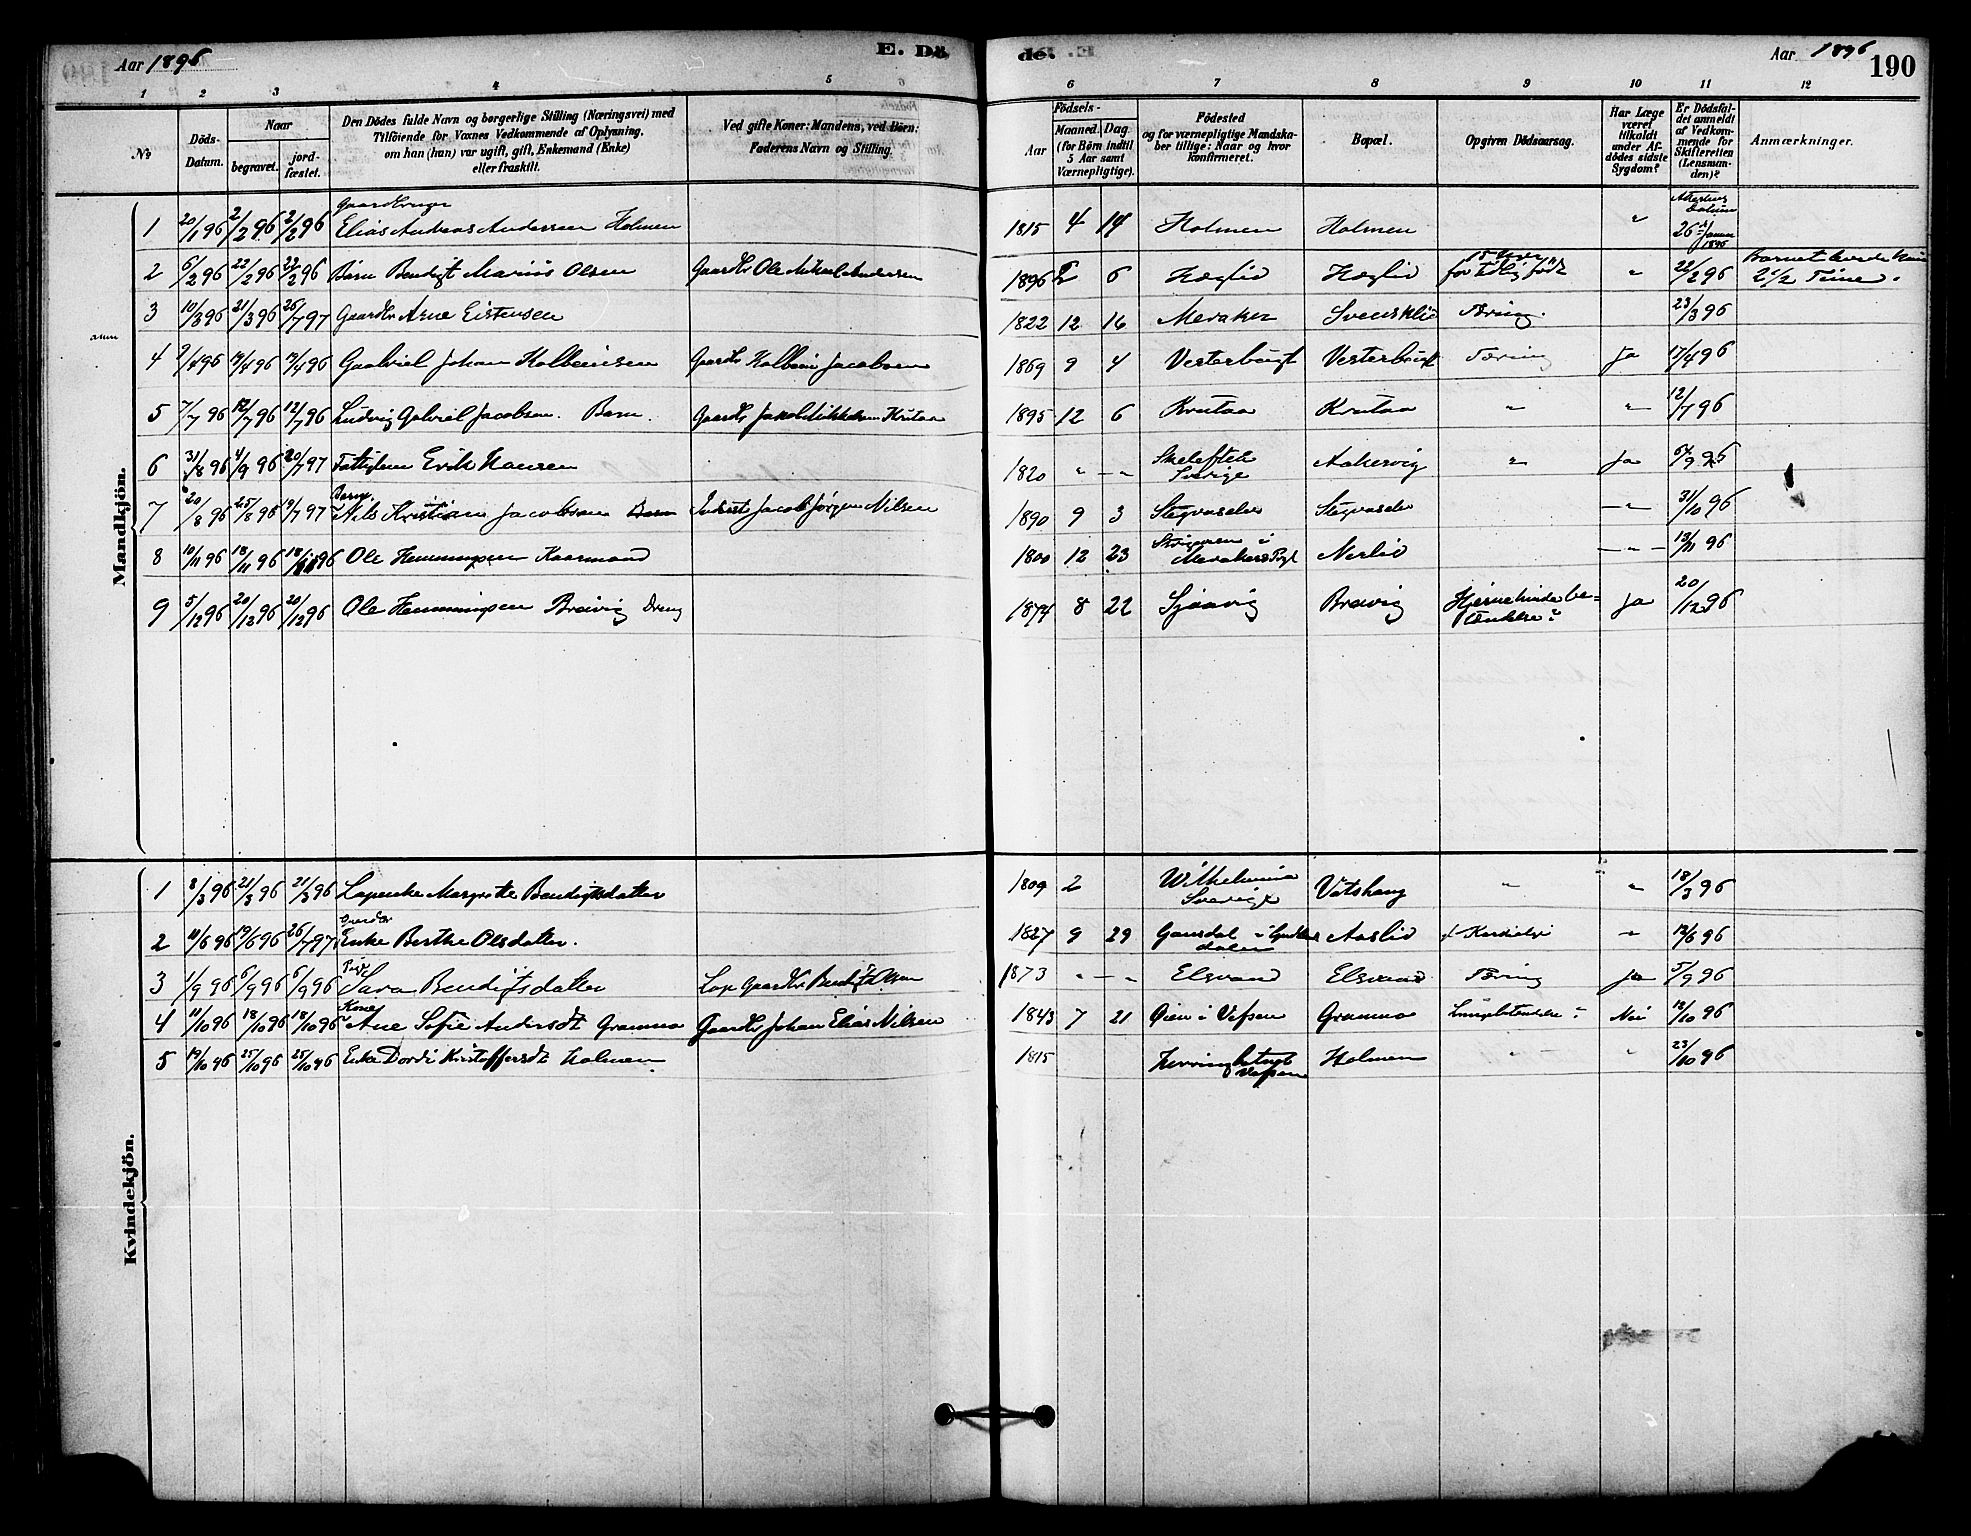 Aar 1896
E. Dö
de.
Aar 1896
190
1 2 3 4 5 6 7 8 9 10 11 12
No
Döds-Datum.
Naar
begravet.
jord-fæstet.
Den Dödes fulde Navn og borgerlige Stilling (Næringsvei) med
Tilföiende for Voxnes Vedkommende af Oplysning,
om han (hun) var ugift, gift, Enkemand (Enke)
eller fraskilt.
Ved gifte Koner: Mandens, ved Börn:
Faderens Navn og Stilling.
Födsels-
Aar
Maaned. Dag
(for Börn indtil
5 Aar samt
Værnepligtige).
Födested
og for værnepligtige Mandska-
ber tillige: Naar og hvor
konfirmeret.
Bopæl.
Opgiven Dödsaarsag.
Har Læge
været
tilkaldt
under Af-
dödes sidste
Sygdom?
Er Dödsfal-
det anmeldt
af Vedkom-
mende for
Skifteretten
(Lensman-
den)?
Anmærkninger.
Mandkjön.
1 20/1 96 2/2 96 2/2 96 Elias Andreas Andersen Holmen 1815 4 14 Holmen Holmen " 26 Januar 1896
2 6/2 96 22/2 96 22/2 96 Barn Bendigt Marius Olsen Gaardbr Ole Mikal Andersen 1896 2 6 Hæglid Hæglid for tidlig født " 22/2 96 Barnet levede kun 2 1/2 Time.
3 10/3 96 21/3 96 25/7 97 Gaardbr Arne Eistensen 1822 12 16 Meraker Svensklid Tæring. 23/3 96
4 9/4 96 17/4 96 17/4 96 Gabriel Johan Kolbeinsen Gaardbr Kolbein Jacobsen 1869 9 4 Vesterbugt Vesterbugt Tæring Ja 17/4 96
5 7/7 96 12/7 96 12/7 96 Ludvig Gabriel Jacobsen. Barn. Gaardbr Jakob Mikkelsen Krutaa 1895 12 6 Krutaa Krutaa " " 12/7 96
6 31/8 96 4/9 96 20/7 97 Fattiglem Erik Hansen 1820 " - " Skelefteå Sverige Aakervig " Ja 96
7 20/8 96 25/8 96 19/7 97 Barn. Nils Kristian Jacobsen Barn Inderst Jacob Jørgen Nilsen 1890 9 3 Stegvaselv Stegvaselv " 31/10 96
8 10/11 96 18/11 96 18/11 96 Ole Hemmingsen Kaarmand 1800 12 23 Nerlid " 13/11 96
9 5/12 96 20/12 96 20/12 96 Ole Hemmingsen Breivig Dreng 1874 8 22 Sjaavig Breivig Hjernehindebe=tændelse? Ja 20/12 96
Kvindekjön.
1 8/3 96 21/3 96 21/3 96 Lapenke Margrethe Bendigtsdatter 1809 2 Wilhelmina Sverige " " 18/3 96
2 11/6 96 19/6 96 26/7 97 Enke Berthe Olsdatter. 1827 9 29 Aaslid " 12/6 96
3 1/9 96 6/9 96 6/9 96 Pige Sara Bendigtsdatter Lap Gaardbr Bendigt Olsen 1873 " - " Elsvand Elsvand Tæring Ja 5/9 96
4 11/10 96 18/10 96 18/10 96 Kone Ane Sofie Andersdt Gramno Gaardbr Johan Elias Nilsen 1843 7 21 Øien i Vefsen Gramno Lungebetændelse? Nei 12/10 96
5 19/10 96 25/10 96 25/10 96 Enke Dordi Kristoffersdt Holmen 1815 Herringbotnet Vefsen Holmen " " 23/10 96